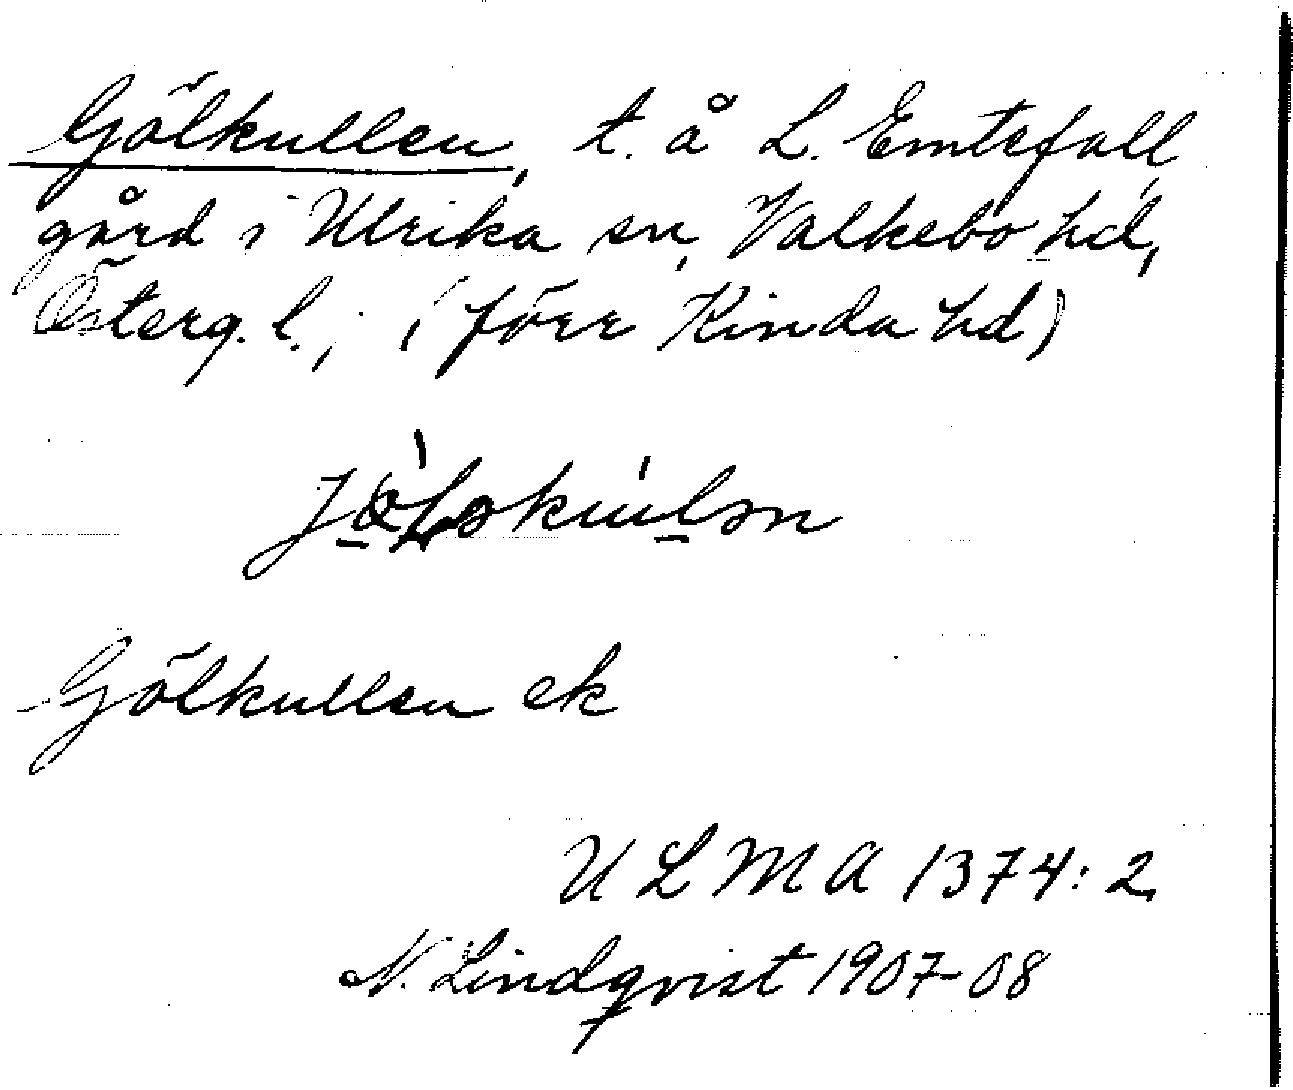 Gölkullen, t. å L. Emtefall,
gård i Ulrika sn, Valkebo hd,
Österg. l., (förr Kinda hd)
Gölkullen ek
ULMA 1374:2,
N. Lindqvist 1907-08